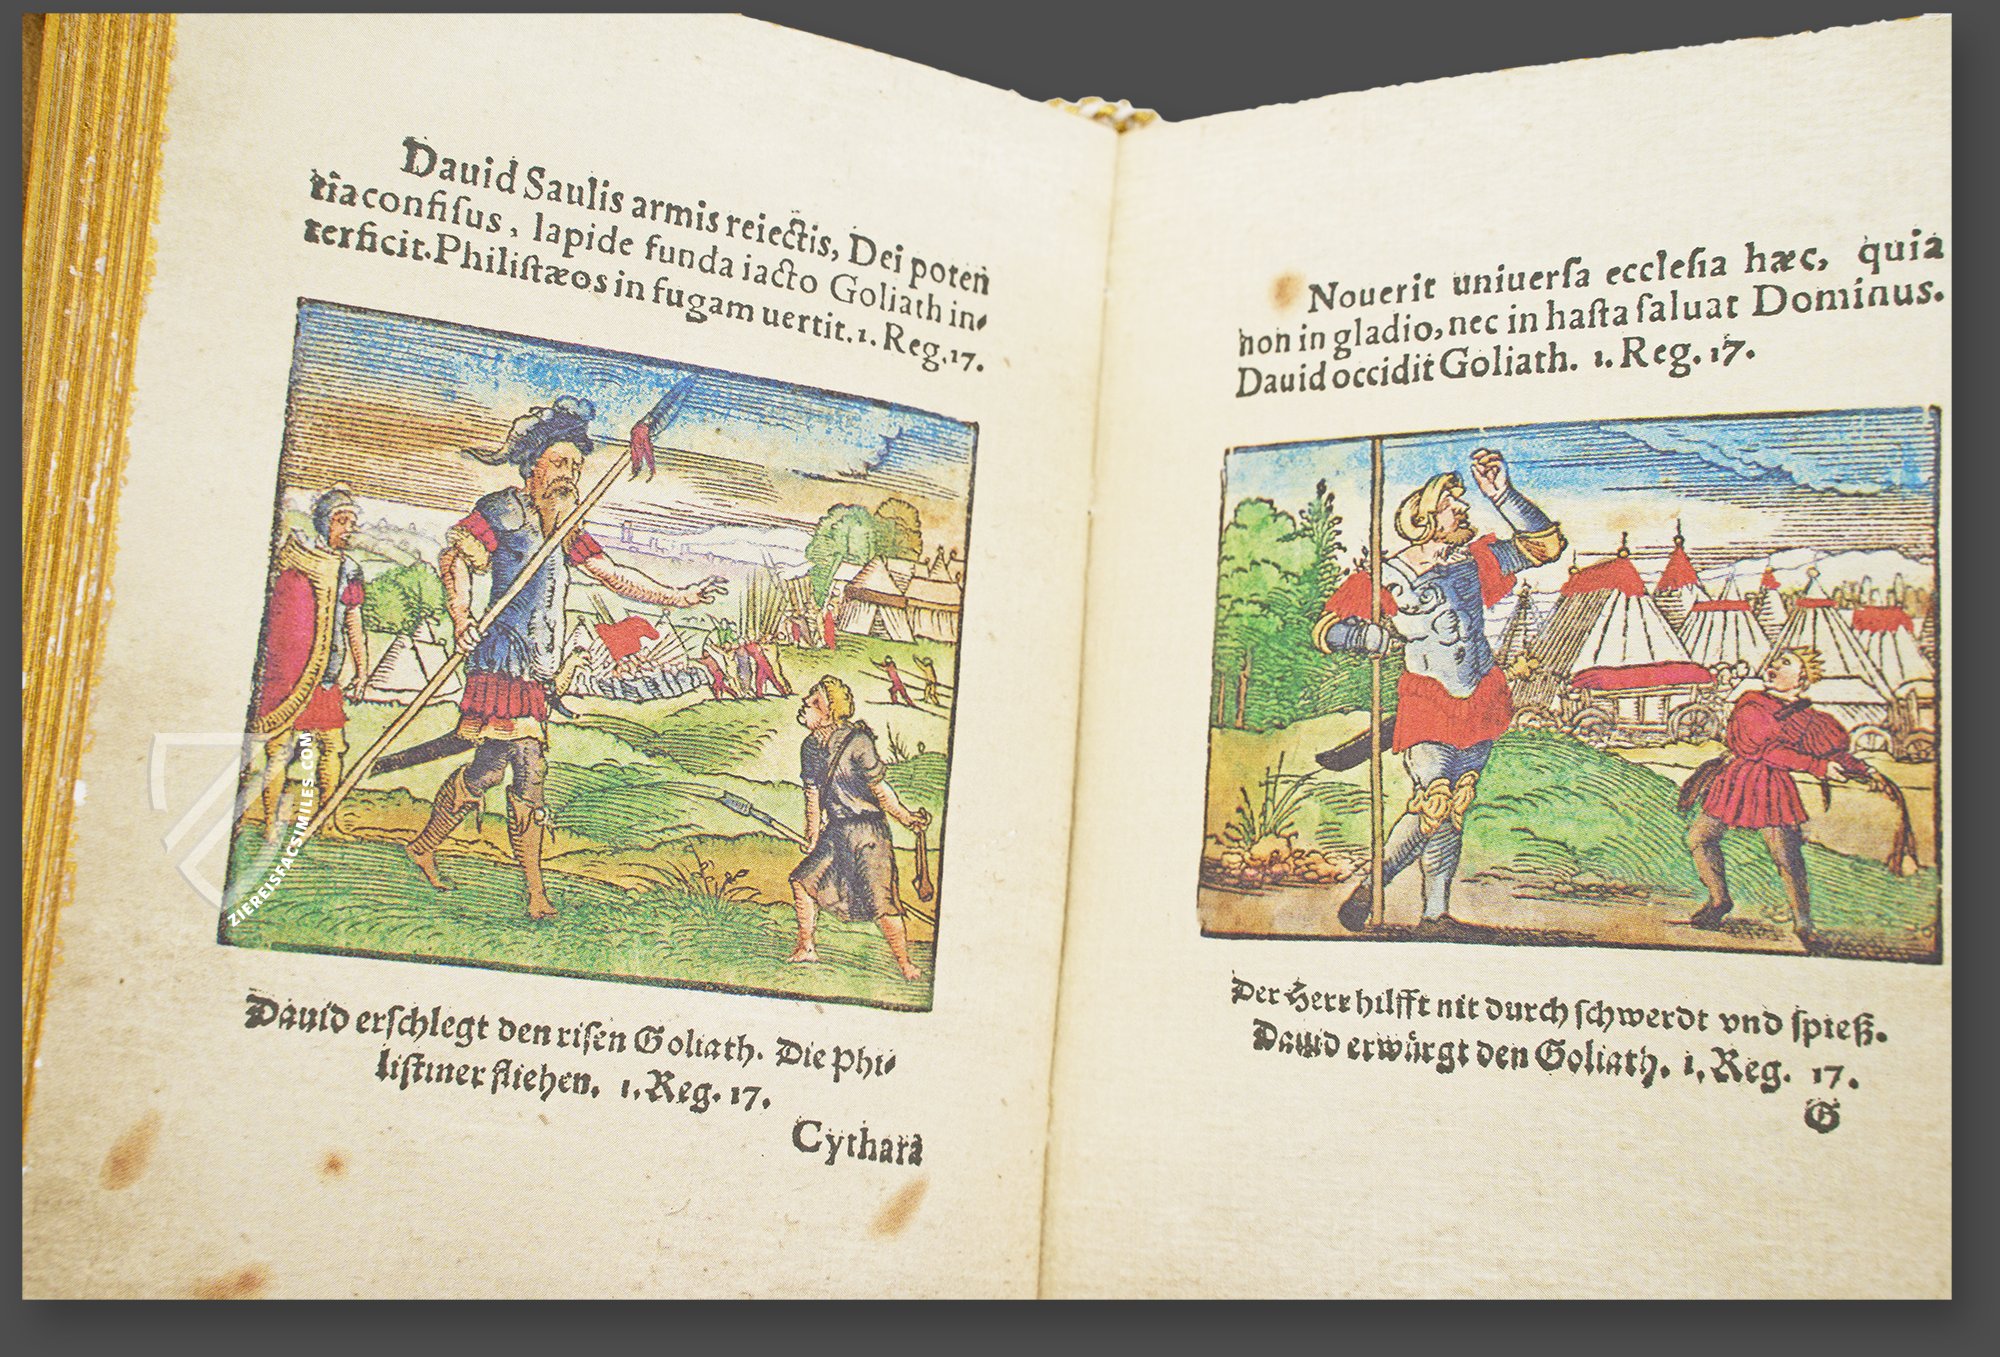 Dauid Saulis armis reiectis, Dei poten
tia confiſus, lapide funda iacto Goliath in-
terficit. Philiſtæos in fugam uertit. 1. Reg. 17.
Dauid erſchlegt den riſen Goliath. Die Phi-
liſtiner fliehen. 1. Reg. 17.
Cythara
Nouerit uniuerſa eccleſia hæc, quia
non in gladio, nec in haſta ſaluat Dominus.
Dauid occidit Goliath. 1. Reg. 17.
Der Herr hilfft nit durch ſchwerdt vnd ſpieß.
Dauid erwürgt den Goliath. 1. Reg. 17.
G
ZIEREISFACSIMILES.COM